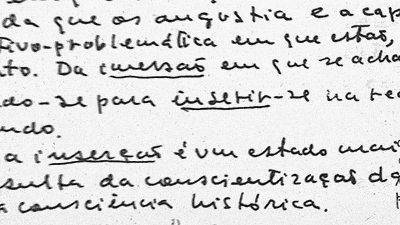 da que os angustia e a cap
tivo-problemática em que estão,
nto. Da imersão em que se acha
do-se para inserir-se na rea
undo.
a inserção é um estado mai
sulta da conscientização da
a consciência histórica.